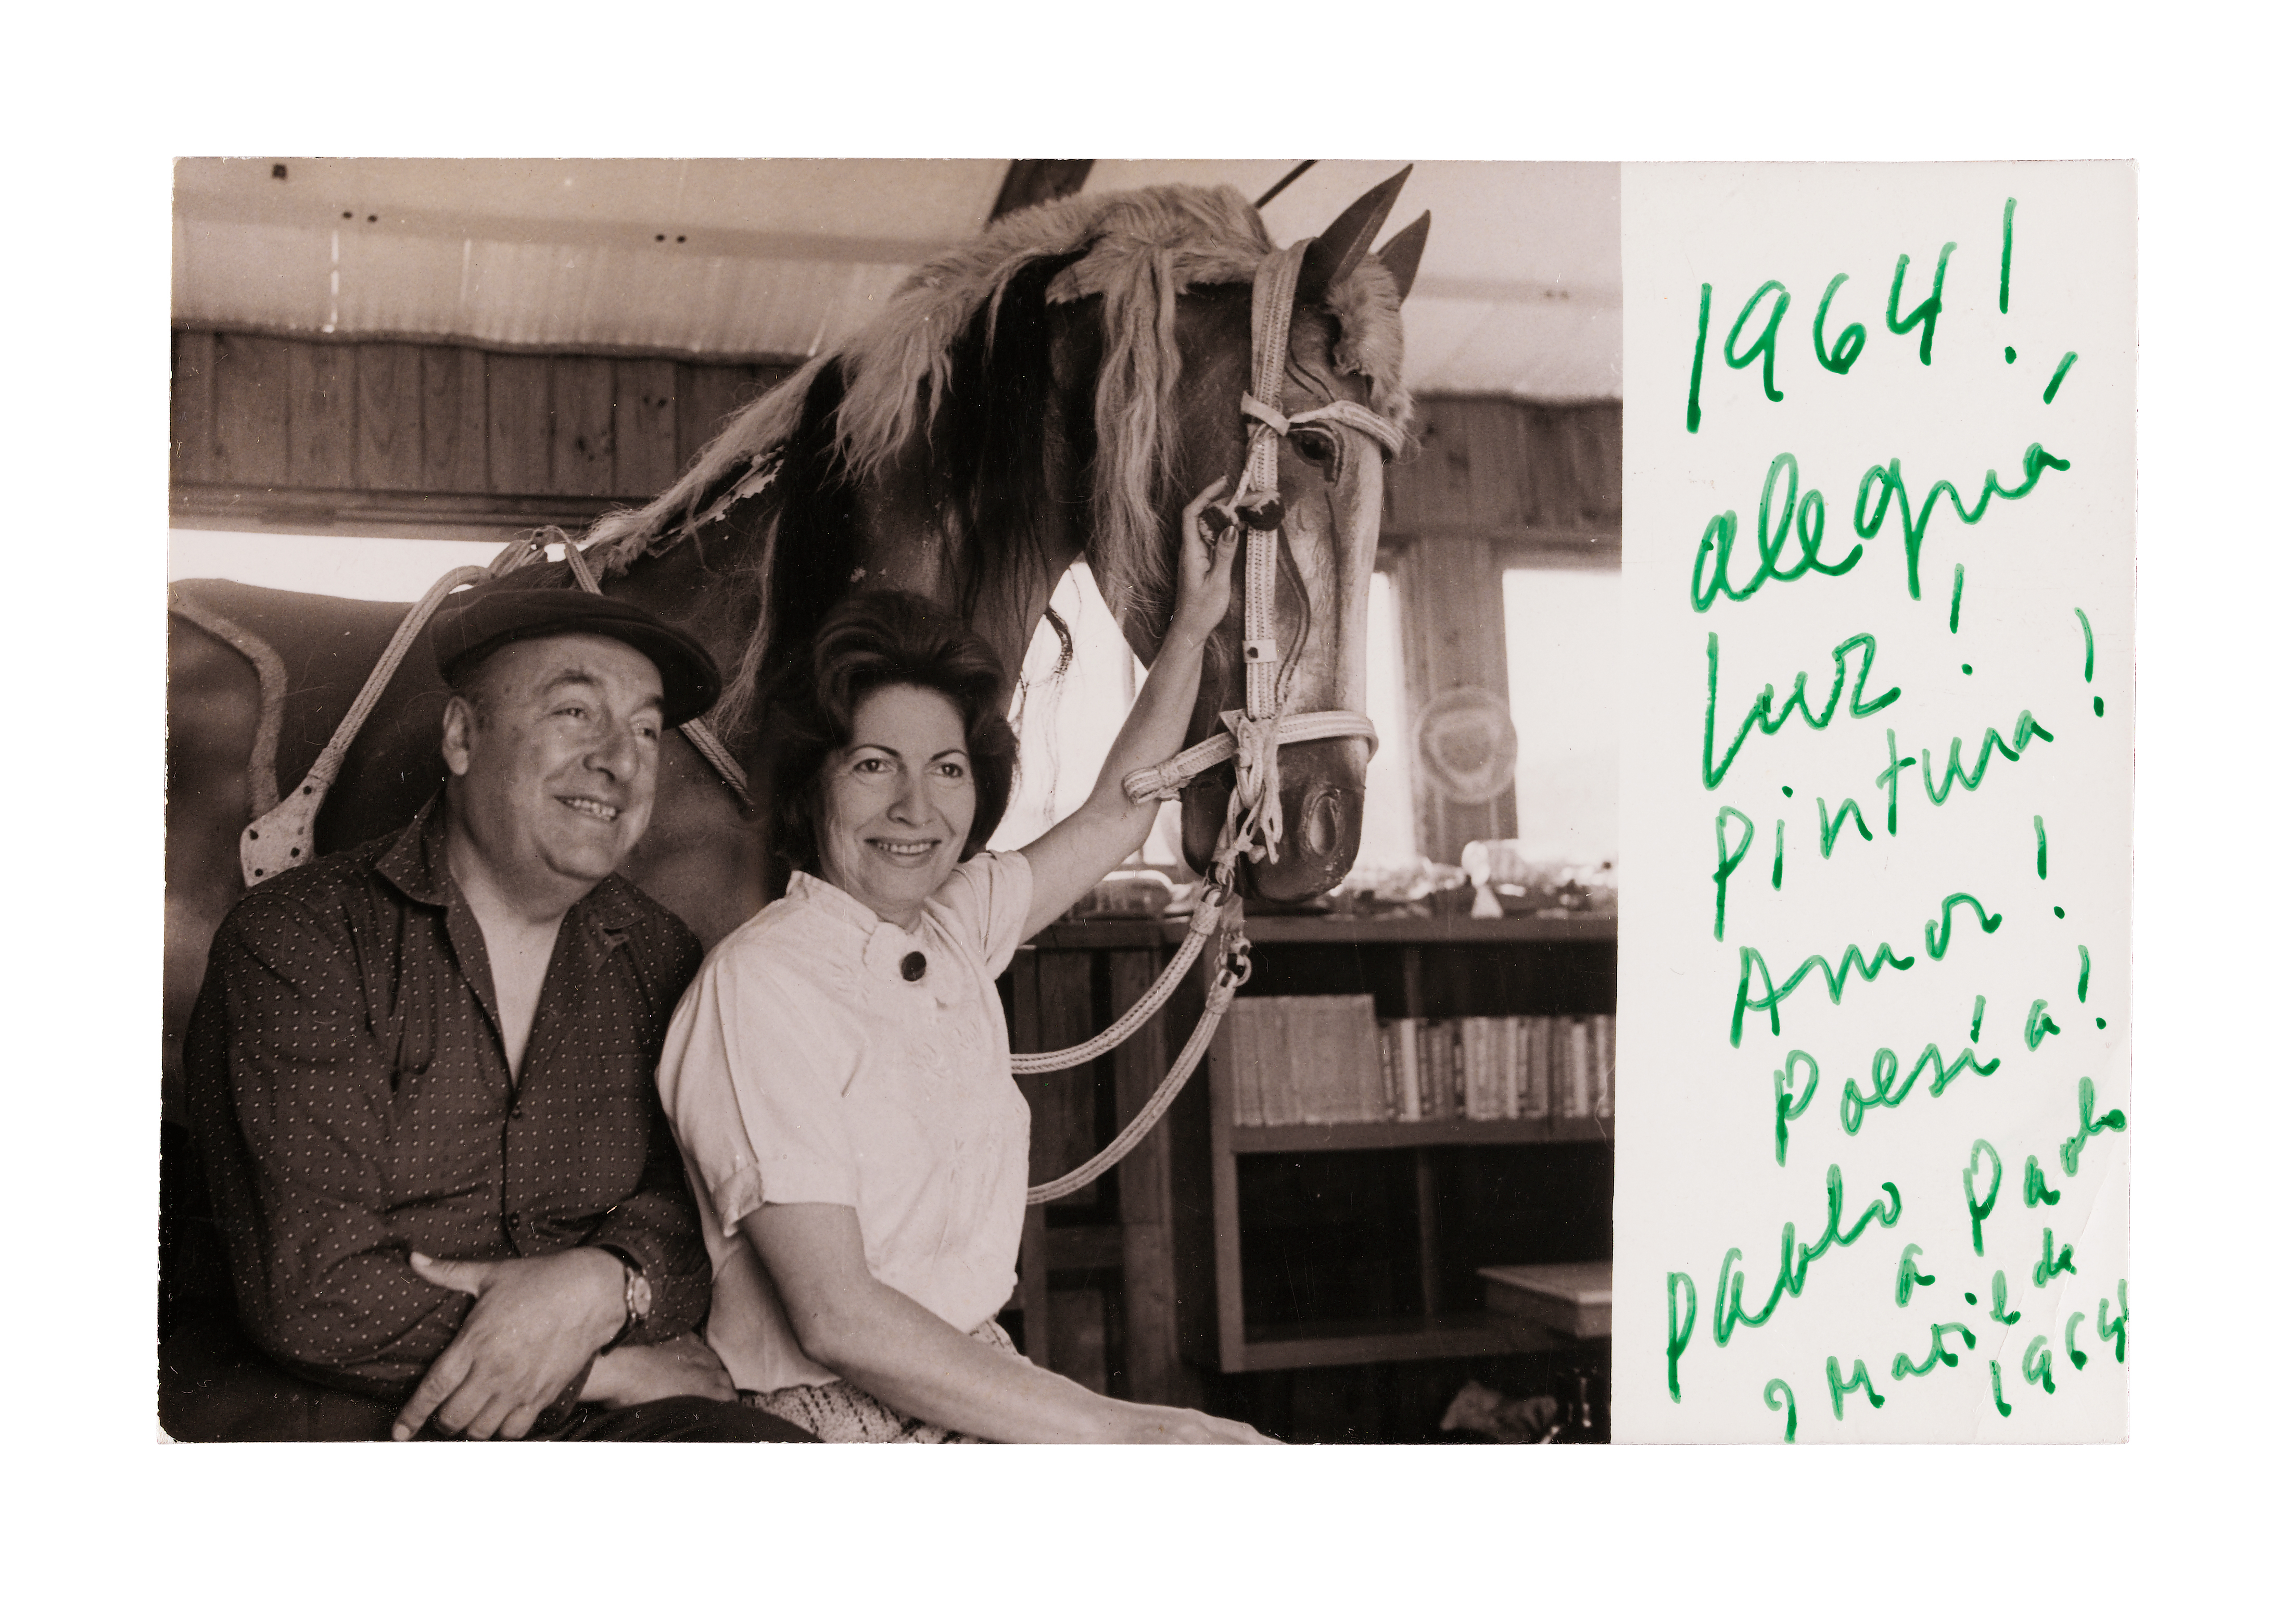 1964!
alegría
Luz!
Pintura!
Amor!
Poesía!
Pablo
a Paolo
y Matilde
1964